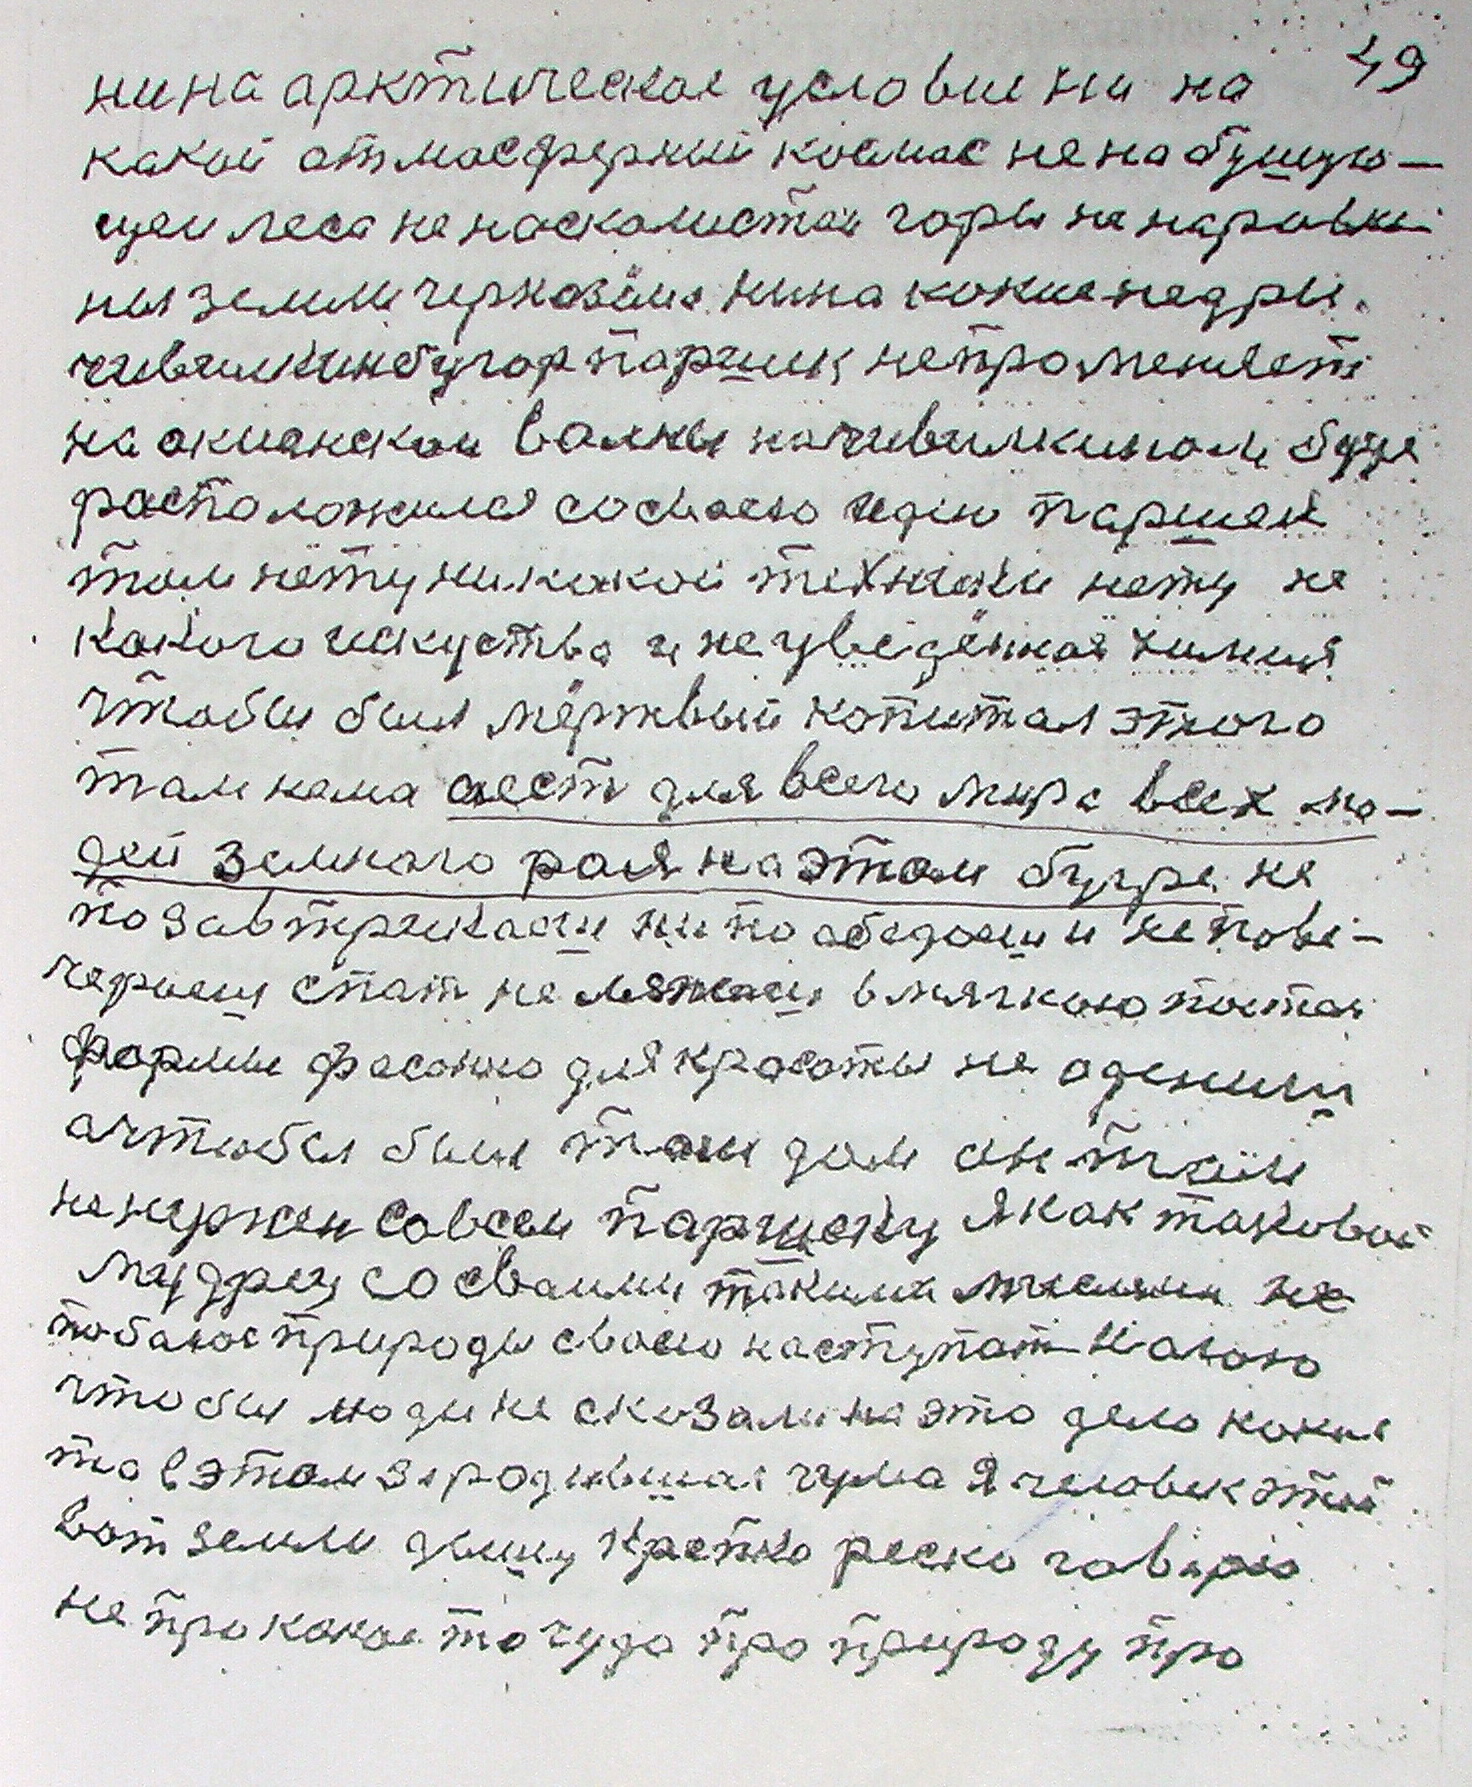 49
ни на арктическое условие ни на
какой атмосферний космос не на бушую-
щеи леса не наскалистаи горы не наравни
ны земли чернозёма нина кокие недры.
чивилкин бугор паршик непроменяет
на окианскои валны начивилкином бугре
расположился сосваею идею паршек
там нету никакой техники нету не
какого искуства и не уведённоя химия
чтобы был мёртвый копитал этого
там нема аест для всего мира всех лю-
дей земного рая на этом бугре не
позавтрикаеш ни по абедаеш и неповe-
чериеш спат не ляжеш в мягкою постел
формы фасонно для красоты не оденеш
ачтобы был там дом он такой
ненужен совсем паршеку я как таковой
мудрец со сваими такими мыслями не
побаюс природы сваею наступат Нагою
чтобы люди не сказали на это дело какие
то в этом зародившая чума я человек этой
вот земли дышу крепко реско гаварю
не про какое то чудо про природу про